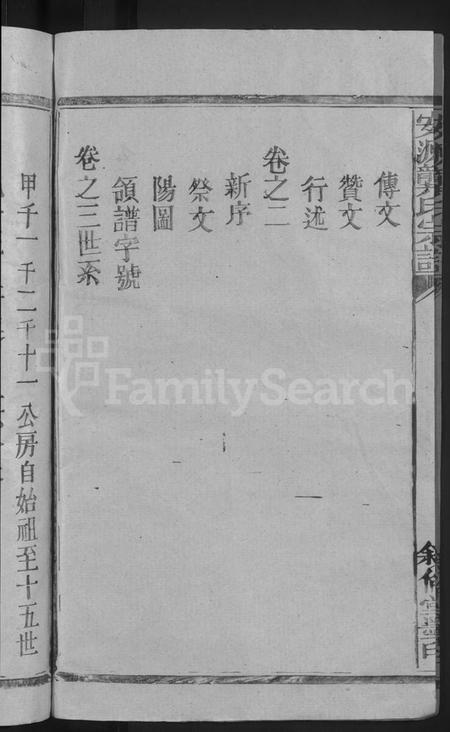 傳文
贊文
行述
卷之二
新序
祭文
陽圖
領譜字號
卷之三世系
甲千一千二千十一公房自始祖至十五世
FamilySearch